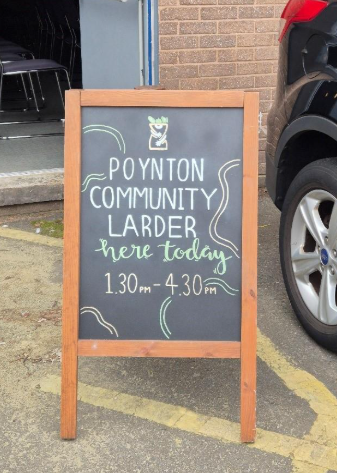 POYNTON
COMMUNITY
LARDER
here today
1.30PM - 4.30PM